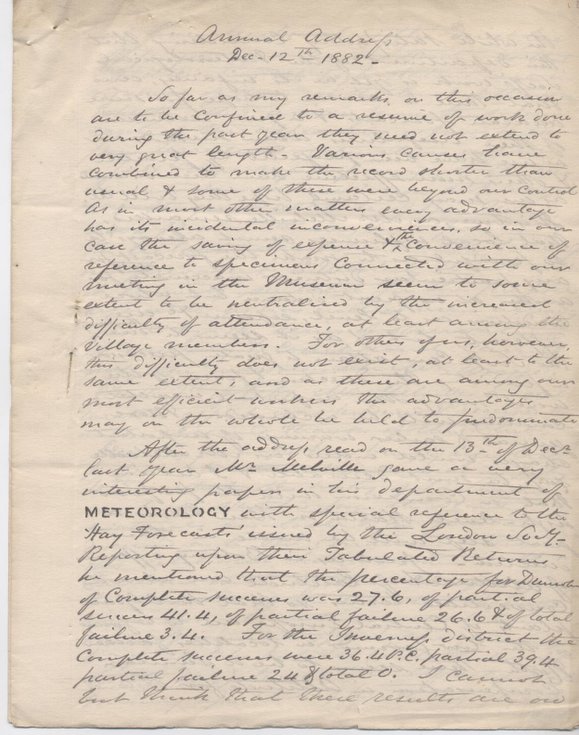 Annual Address
Dec. 12th 1882-
So far as my remarks on this occasion
are to be confined to a resume of work done
during the past year they need not extend to
very great length - Various causes have
combined to make the record shorter than
usual & some of these were beyond our control
As in most other matters every advantage
has its incidental inconveniences, so in our
case the saving of expense & the convenience of
reference to specimens connected with our
meeting in the Museum seem to some
extent to be neutralised by the increased
difficulty of attendance, at least among the
village members. For others of us, however,
this difficulty does not exist, at least to the
same extent, and as these are among our
most efficient workers the advantages
may on the whole be held to predominate
After the address read on the 13th of Decr.
last year Mr. Melville gave a very
interesting paper in his department of
METEOROLOGY with special reference to the
'Hay Forecasts' issued by the London Socy.
Reporting upon their Tabulated Returns
he mentioned that the percentage for
of Complete successes was 27.6, of partial
success 41.4, of partial failure 26.6 & of total
failure 3.4. For the Inverness district the
Complete successes were 36.4 P.C. partial 39.4
partial failure 24 & total 0. I cannot
but think that these results are on